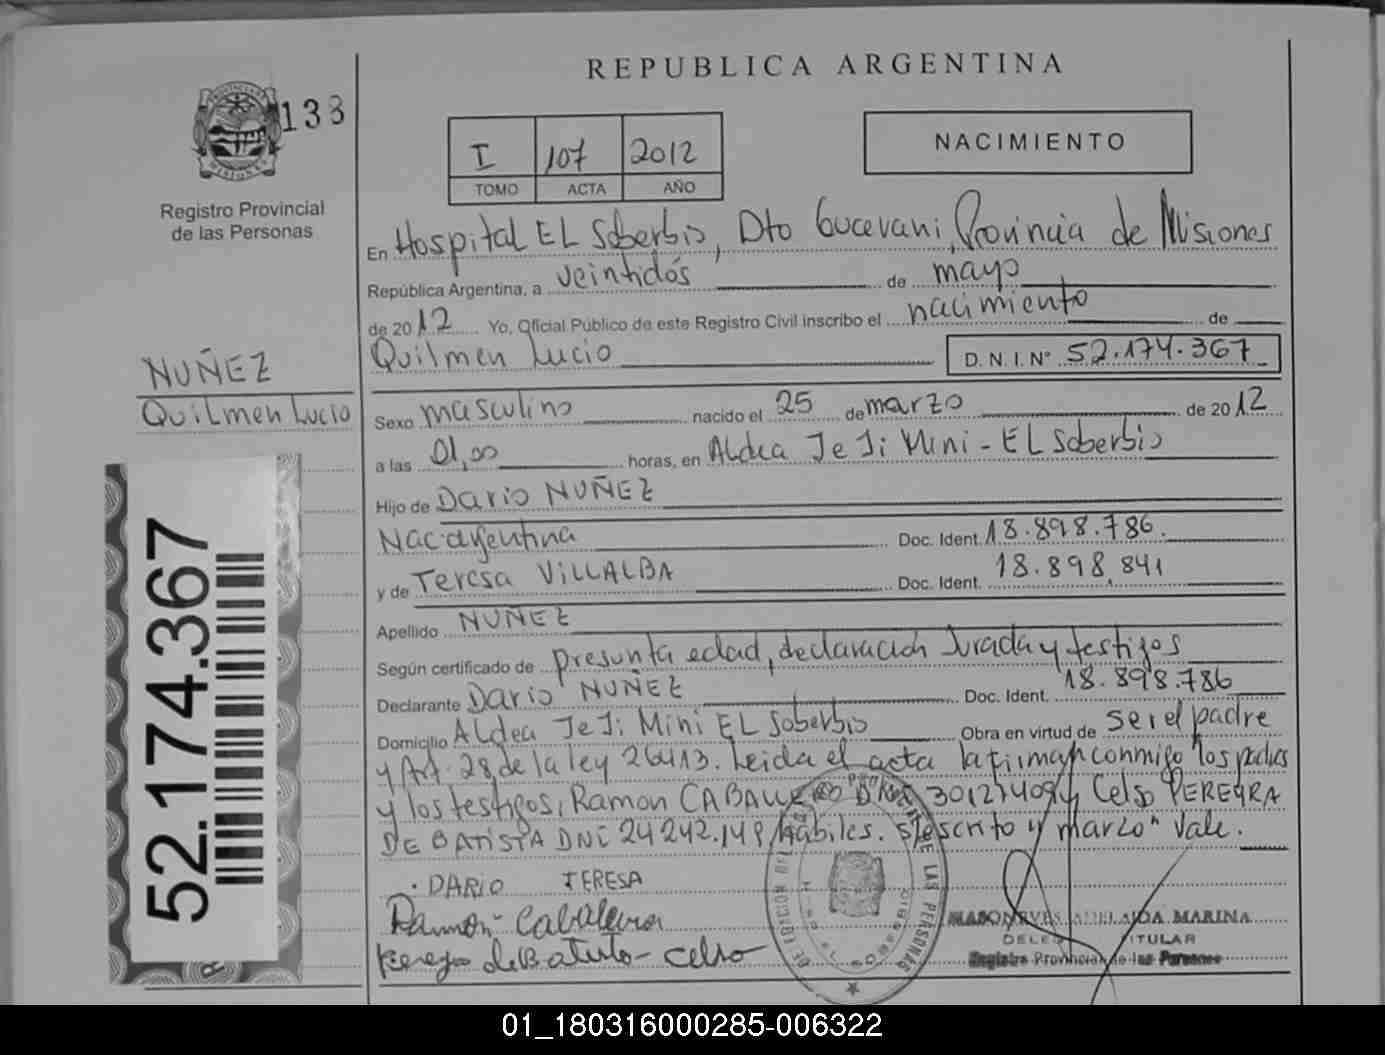 REPUBLICA ARGENTINA
133
I 107 2012
TOMO ACTA AÑO
NACIMIENTO
PROVINCIA DE MISIONES
Registro Provincial
de las Personas
En Hospital EL Soberbio, Dto Guaraní, Provincia de Misiones
República Argentina, a veintidós de mayo
de 2012 Yo, Oficial Público de este Registro Civil inscribo el nacimiento de
Quilmen Lucio D. N. I. Nº 52.174.367
NUÑEZ
Quilmen Lucio
Sexo masculino nacido el 25 de marzo de 2012
a las 01,00 horas, en Aldea Je Ji Mini - EL Soberbio
Hijo de Dario NUÑEZ
Nac. argentina Doc. Ident. 18.898.786.
y de Teresa VILLALBA Doc. Ident. 18.898.841
Apellido NUÑEZ
Según certificado de presunta edad, declaración Jurada y testigos
Declarante Dario NUÑEZ Doc. Ident. 18.898.786
Domicilio Aldea Je Ji Mini EL Soberbio Obra en virtud de ser el padre
y Art. 28 de la ley 26413. Leida el acta la firman conmigo los padres
y los testigos, Ramon CABALLERO DNI y Celso PEREYRA
DE BATISTA DNI 24242.148 hábiles. S/escrito "marzo" Vale.
DARIO TERESA
Ramon
de Batista - Celso
DE LAS PERSONAS
ADELAIDA MARINA
TITULAR
Registro Provincial de las Personas
52.174.367
01_180316000285-006322